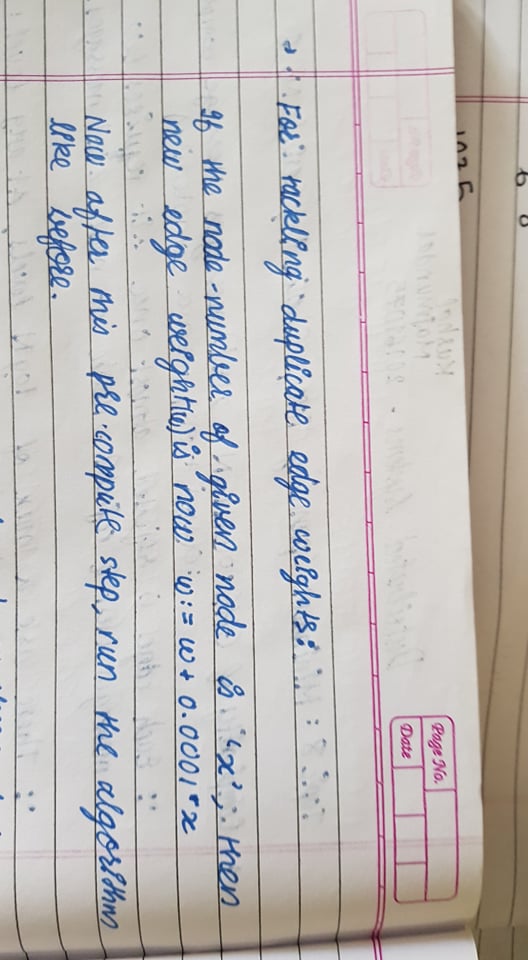 Page No.
Date
→ For tackling duplicate edge weights:
If the node-number of given node is 'x', then
new edge weight(w) is now w := w + 0.0001*x
Now after this pre-compute step, run the algorithm
like before.